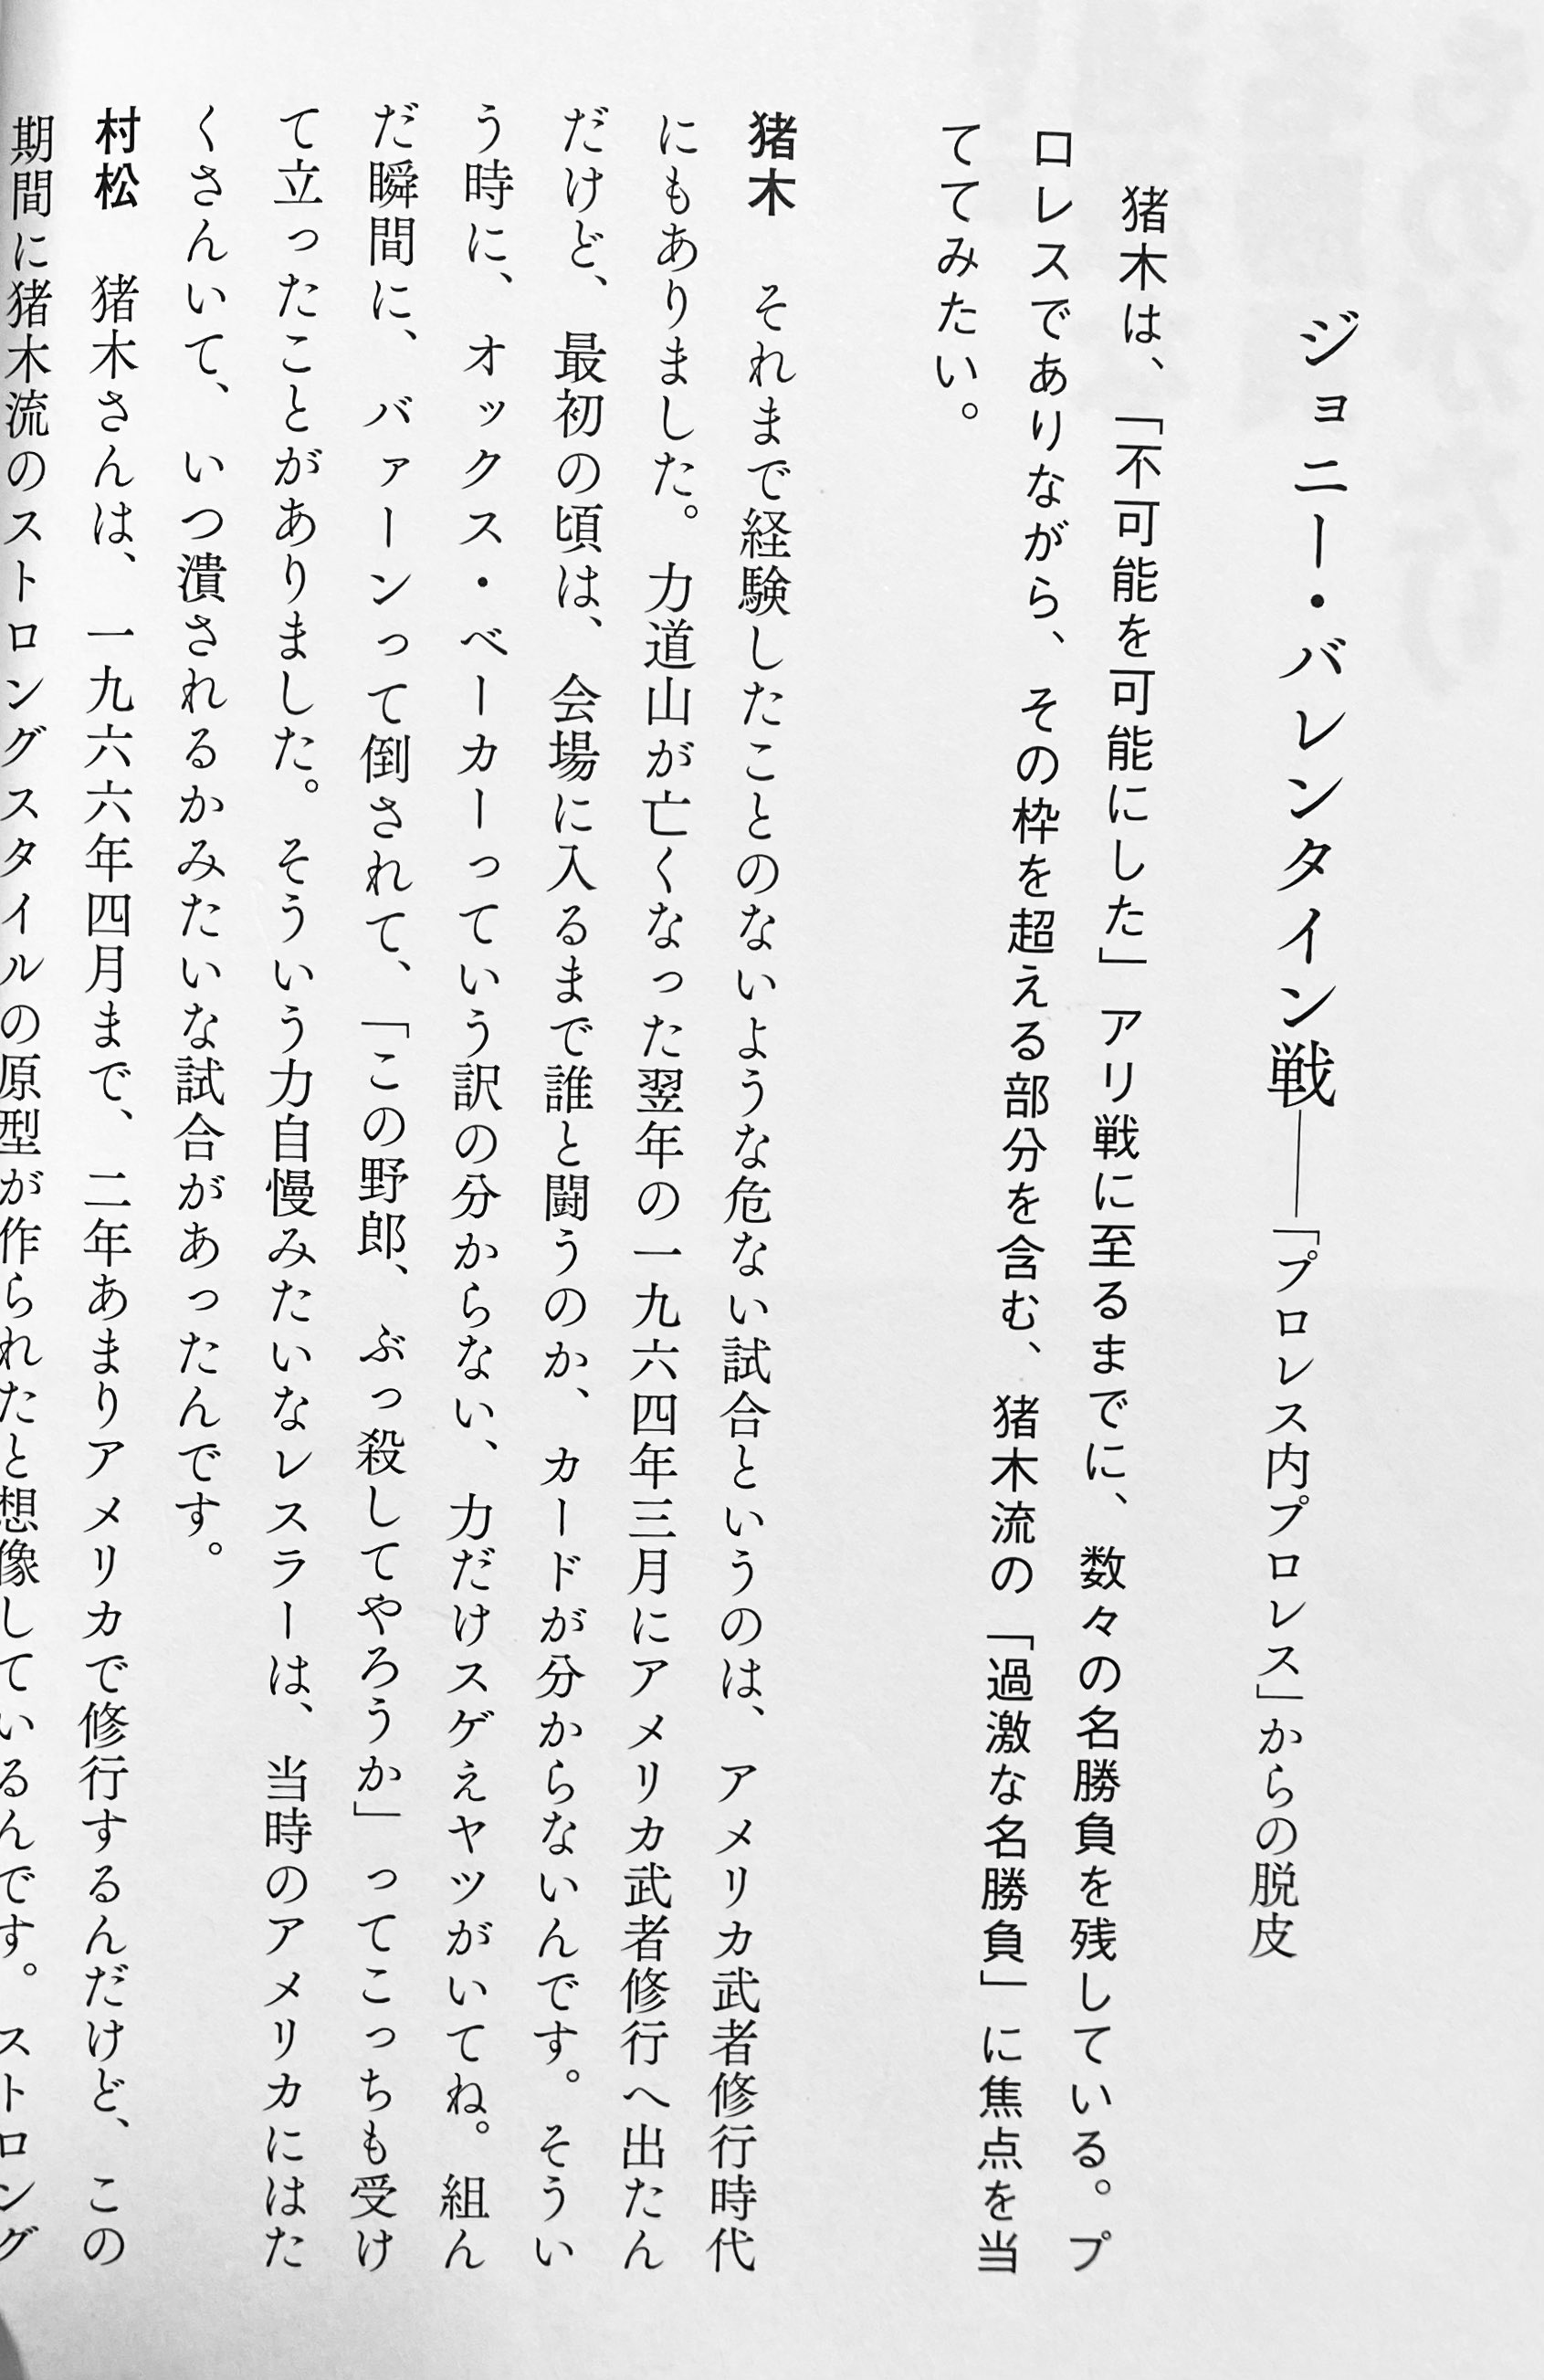 ジョニー・バレンタイン戦――「プロレス内プロレス」からの脱皮
猪木は、「不可能を可能にした」アリ戦に至るまでに、数々の名勝負を残している。プ
ロレスでありながら、その枠を超える部分を含む、猪木流の「過激な名勝負」に焦点を当
ててみたい。
猪木　それまで経験したことのないような危ない試合というのは、アメリカ武者修行時代
にもありました。力道山が亡くなった翌年の一九六四年三月にアメリカ武者修行へ出たん
だけど、最初の頃は、会場に入るまで誰と闘うのか、カードが分からないんです。そうい
う時に、オックス・ベーカーっていう訳の分からない、力だけスゲぇヤツがいてね。組ん
だ瞬間に、バァーンって倒されて、「この野郎、ぶっ殺してやろうか」ってこっちも受け
て立ったことがありました。そういう力自慢みたいなレスラーは、当時のアメリカにはた
くさんいて、いつ潰されるかみたいな試合があったんです。
村松　猪木さんは、一九六六年四月まで、二年あまりアメリカで修行するんだけど、この
期間に猪木流のストロングスタイルの原型が作られたと想像しているんです。ストロング